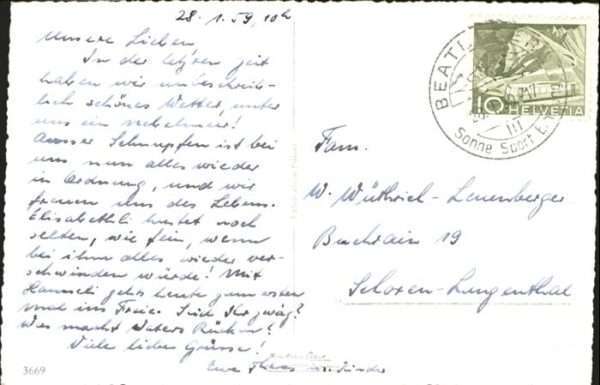 28. 1. 59, 10h
Unsere Lieben,
In der letzten Zeit
haben wir unbeschreib-
lich schönes Wetter, unter
uns ein Nebelmeer!
Ausser Schnupfen ist bei
uns nun alles wieder
in Ordnung, und wir
freuen uns des Lebens.
Elisabethli hustet noch
selten, wie fein, wenn
bei ihm alles wieder ver-
schwinden würde! Mit
Hansueli gehts heute zum ersten
mal ins Freie. Seid Ihr zwäg?
Was macht Vaters Rücken?
Viele liebe Grüsse!
Eure
3669
BEATENB
Sonne Sport E
III
10 HELVETIA
Fam.
W. Wüthrich-Leuenberger
Buchrain 19
Schoren-Langenthal